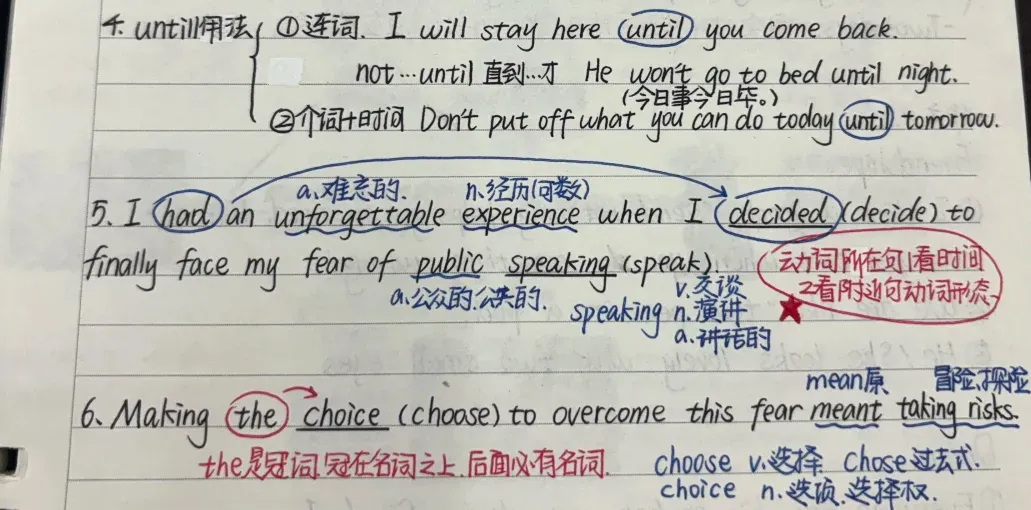 4. until用法 ①连词. I will stay here until you come back.
not…until 直到…才 He won't go to bed until night.
(今日事今日毕。)
②介词+时间 Don't put off what you can do today until tomorrow.
a.难忘的. n.经历(可数)
5. I had an unforgettable experience when I decided (decide) to
finally face my fear of public speaking (speak).
动词所在句1看时间
2看附近句动词形态
a.公众的.公共的.
speaking v.交谈
n.演讲
a.讲话的
mean原 冒险,探险
6. Making the choice (choose) to overcome this fear meant taking risks.
the是冠词.冠在名词之上.后面必有名词.
choose v.选择 Chose过去式.
choice n.选项.选择权.